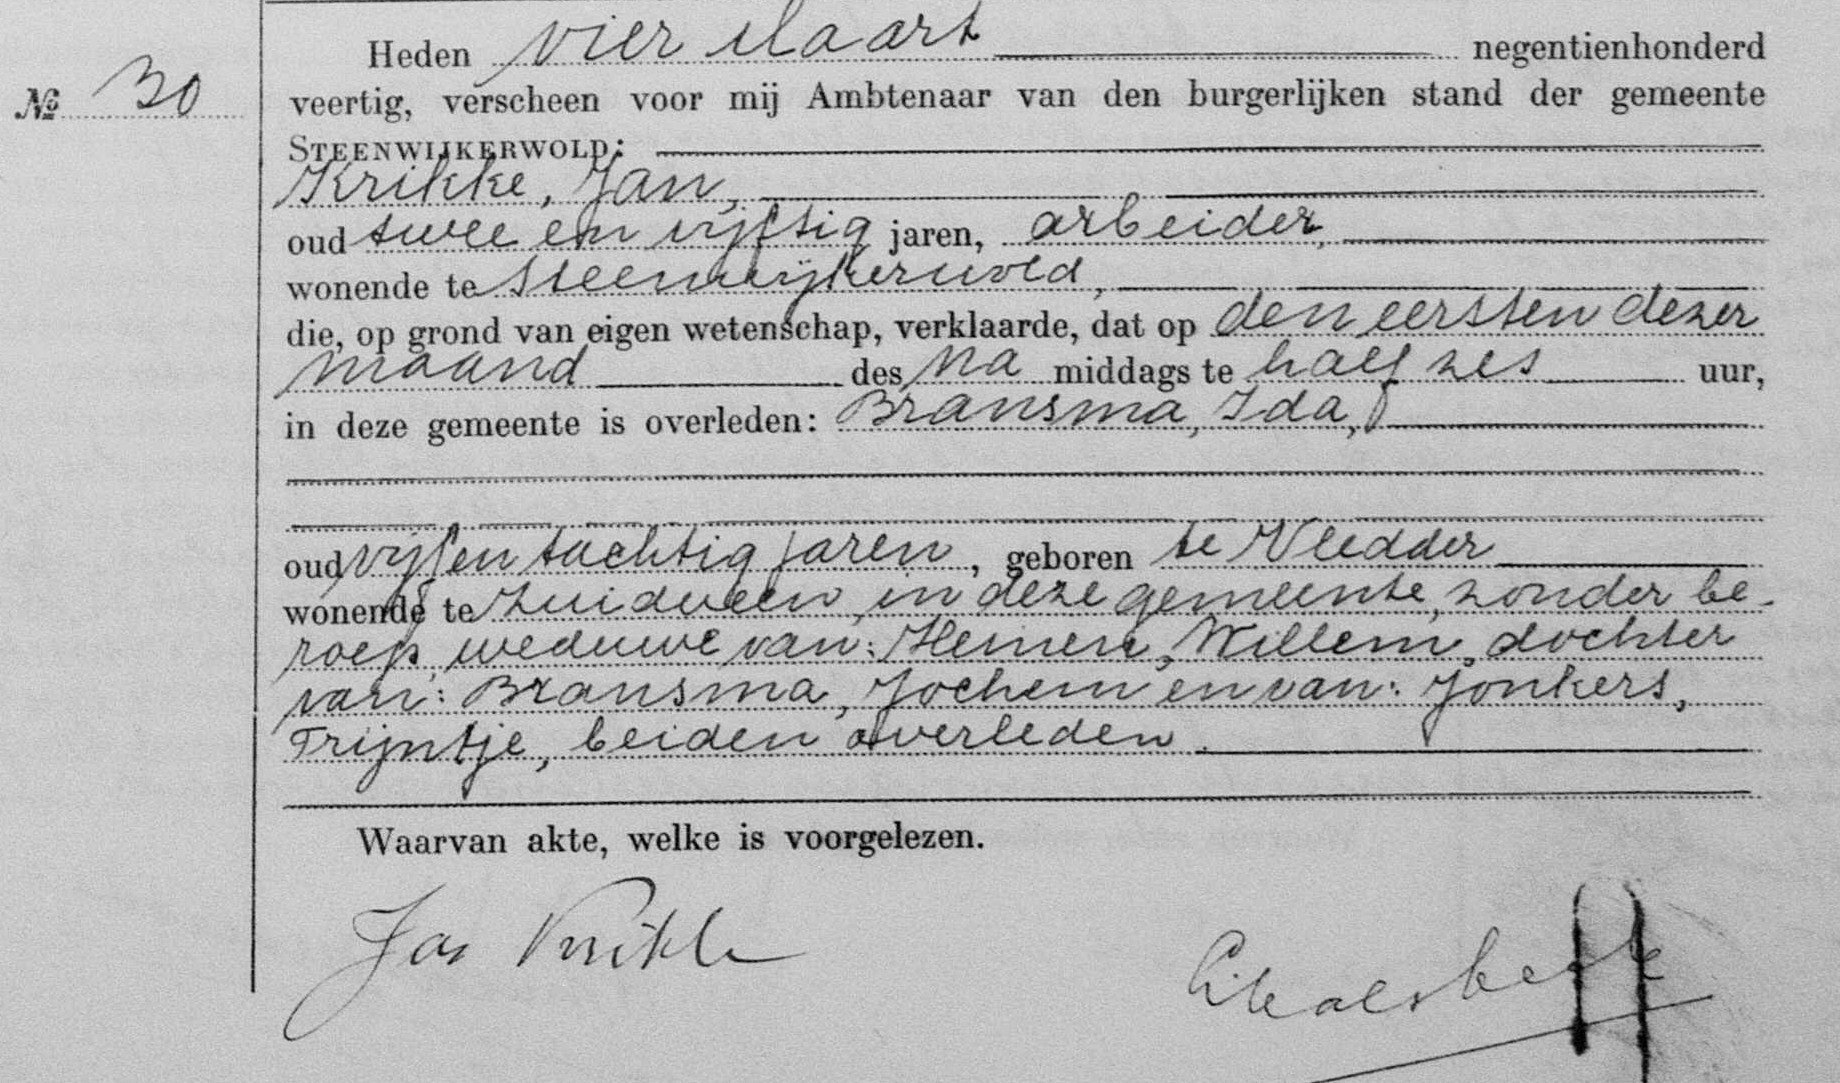 Heden vier Maart negentienhonderd
Nº 30
veertig, verscheen voor mij Ambtenaar van den burgerlijken stand der gemeente
STEENWIJKERWOLD:
Krikke, Jan,
oud twee en vijftig jaren, arbeider,
wonende te Steenwijkerwold,
die, op grond van eigen wetenschap, verklaarde, dat op den eersten dezer
maand des na middags te half zes uur,
in deze gemeente is overleden: Bransma, Ida,
oud vijf en tachtig jaren, geboren te Vledder
wonende te Zuidveen in deze gemeente, zonder be-
roep, weduwe van: Heinen, Willem, dochter
van: Bransma, Jochem en van: Jonkers,
Trijntje, beiden overleden.
Waarvan akte, welke is voorgelezen.
Jan Krikke